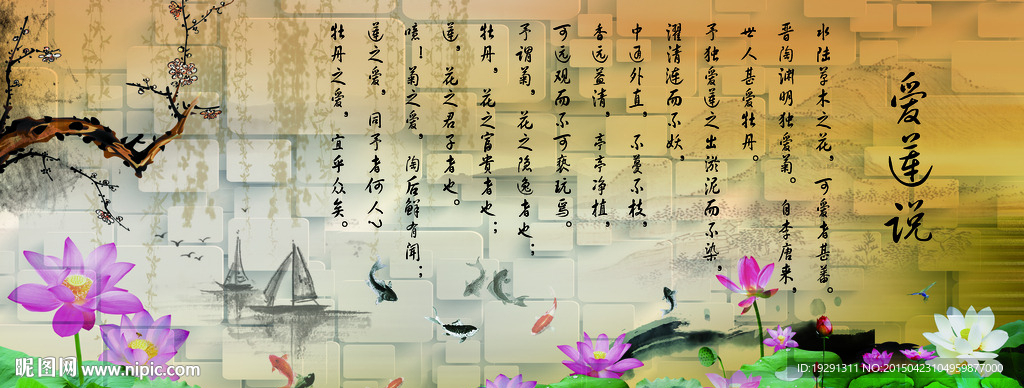 爱莲说
水陆草木之花，可爱者甚蕃。
晋陶渊明独爱菊。自李唐来，
世人甚爱牡丹。
予独爱莲之出淤泥而不染，
濯清涟而不妖，
中通外直，不蔓不枝，
香远益清，亭亭净植，
可远观而不可亵玩焉。
予谓菊，花之隐逸者也；
牡丹，花之富贵者也；
莲，花之君子者也。
噫！菊之爱，陶后鲜有闻；
莲之爱，同予者何人？
牡丹之爱，宜乎众矣。
昵图网 www.nipic.com
ID:19291311 NO:20150423104959877000